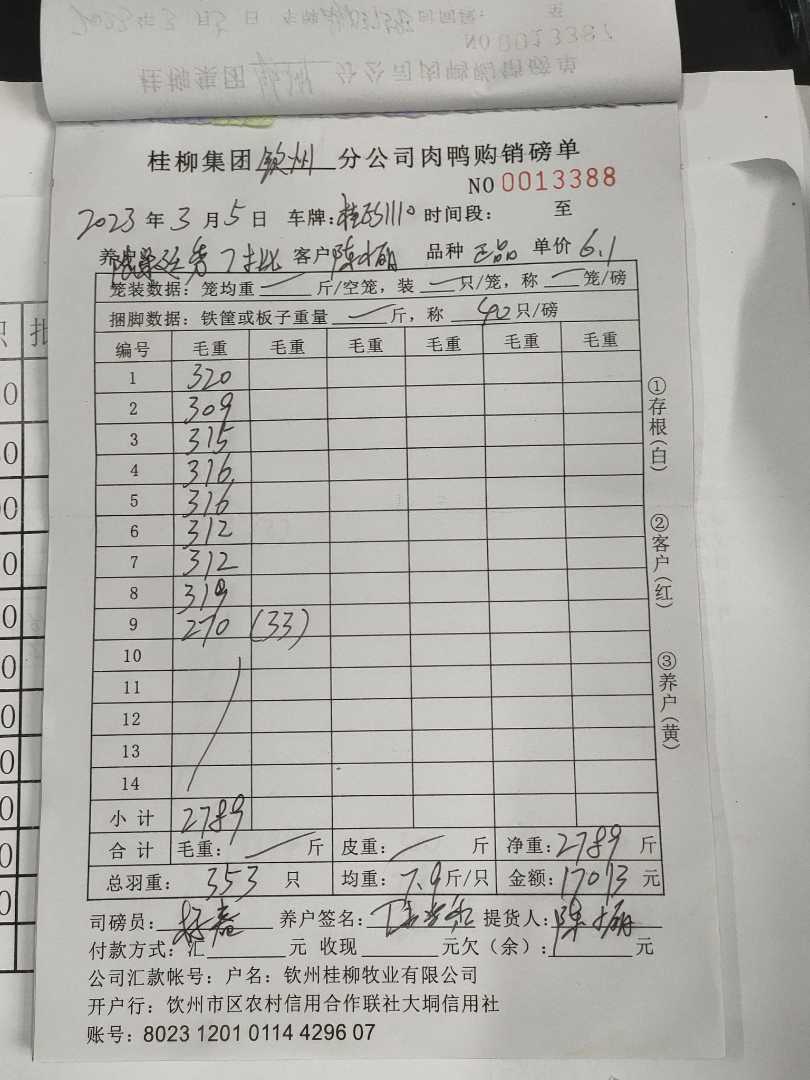 桂柳集团 钦州 分公司肉鸭购销磅单
NO 0013387
2023 年 3 月 5 日 车牌: 时间段: 至
桂柳集团 钦州 分公司肉鸭购销磅单
NO 0013388
2023 年 3 月 5 日 车牌: 时间段: 至
养户 客户 品种 正品 单价 6.1
笼装数据: 笼均重 斤/空笼, 装 只/笼, 称 笼/磅
捆脚数据: 铁筐或板子重量 斤, 称 40 只/磅
编号 毛重 毛重 毛重 毛重 毛重 毛重
1 320
2 309
3 315
4 316
5 316
6 312
7 312
8 319
9 270 (33)
10
11
12
13
14
小计 2789
合计 毛重: 斤 皮重: 斤 净重: 2789 斤
总羽重: 353 只 均重: 7.9 斤/只 金额: 17013 元
司磅员: 养户签名: 提货人:
付款方式: 汇 元 收现 元欠(余): 元
公司汇款帐号: 户名: 钦州桂柳牧业有限公司
开户行: 钦州市区农村信用合作联社大垌信用社
账号: 8023 1201 0114 4296 07
①存根(白)
②客户(红)
③养户(黄)